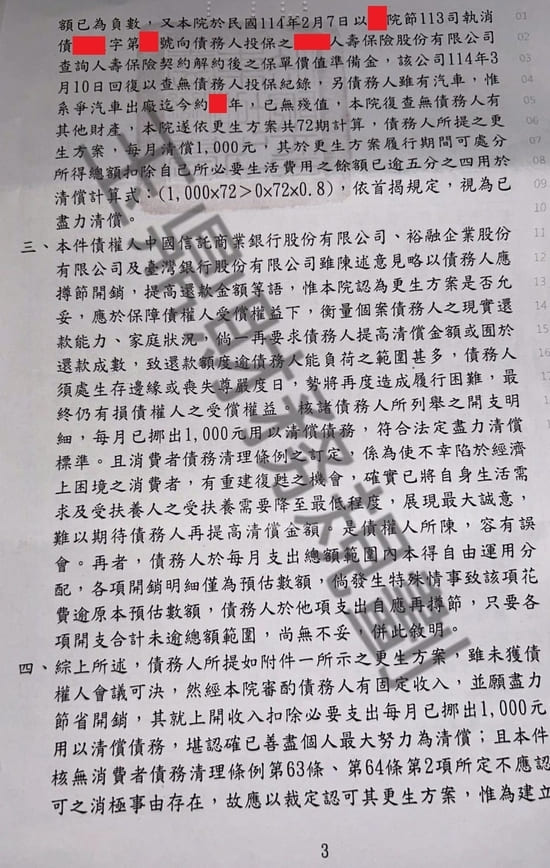 額已為負數，又本院於民國114年2月7日以 院節113司執消 01
債 字第 號向債務人投保之 人壽保險股份有限公司 02
查詢人壽保險契約解約後之保單價值準備金，該公司114年3 03
月10日回復以查無債務人投保紀錄，另債務人雖有汽車，惟 04
系爭汽車出廠迄今約 年，已無殘值，本院復查無債務人有 05
其他財產，本院遂依更生方案共72期計算，債務人所提之更 06
生方案，每月清償1,000元，其於更生方案履行期間可處分 07
所得總額扣除自己所必要生活費用之餘額已逾五分之四用於 08
清償計算式：(1,000x72＞0x72x0.8)，依首揭規定，視為已 09
盡力清償。 10
三、本件債權人中國信託商業銀行股份有限公司、裕融企業股份 11
有限公司及臺灣銀行股份有限公司雖陳述意見略以債務人應 12
撙節開銷，提高還款金額等語，惟本院認為更生方案是否允 13
妥，應於保障債權人受償權益下，衡量個案債務人之現實還 14
款能力、家庭狀況，倘一再要求債務人提高清償金額或囿於 15
還款成數，致還款額度逾債務人能負荷之範圍甚多，債務人 16
須處生存邊緣或喪失尊嚴度日，勢將再度造成履行困難，最 17
終仍有損債權人之受償權益。核諸債務人所列舉之開支明 18
細，每月已挪出1,000元用以清償債務，符合法定盡力清償 19
標準。且消費者債務清理條例之訂定，係為使不幸陷於經濟 20
上困境之消費者，有重建復甦之機會，確實已將自身生活需 21
求及受扶養人之受扶養需要降至最低程度，展現最大誠意，
難以期待債務人再提高清償金額。是債權人所陳，容有誤
會。再者，債務人於每月支出總額範圍內本得自由運用分
配，各項開銷明細僅為預估數額，倘發生特殊情事致該項花
費逾原本預估數額，債務人於他項支出自應再撙節，只要各
項開支合計未逾總額範圍，尚無不妥，併此敘明。
四、綜上所述，債務人所提如附件一所示之更生方案，雖未獲債
權人會議可決，然經本院審酌債務人有固定收入，並願盡力
節省開銷，其就上開收入扣除必要支出每月已挪出1,000元
用以清償債務，堪認確已善盡個人最大努力為清償；且本件
核無消費者債務清理條例第63條、第64條第2項所定不應認
可之消極事由存在，故應以裁定認可其更生方案，惟為建立
3